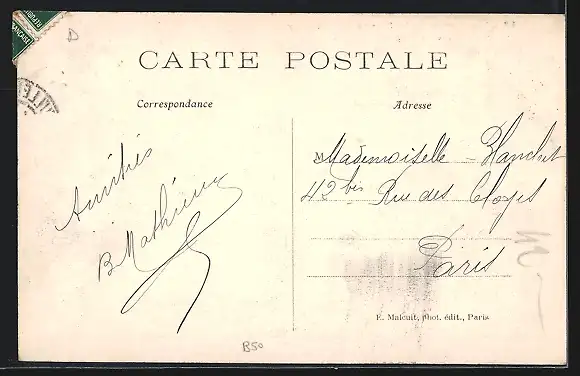 D
CARTE POSTALE
Correspondance
Adresse
Amitiés
B Mathieu
Mademoiselle - Blanchet
42 bis Rue des Cloys
Paris
E. Malcuit, phot. édit., Paris
B50